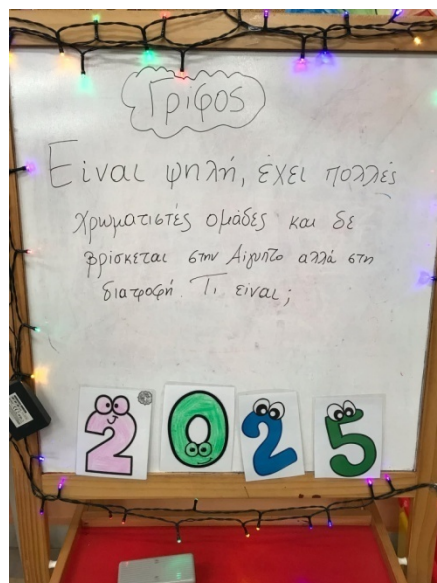 Γρίφος
Είναι ψηλή, έχει πολλές
χρωματιστές ομάδες και δε
βρίσκεται στην Αίγυπτο αλλά στη
διατροφή. Τι είναι;
2025